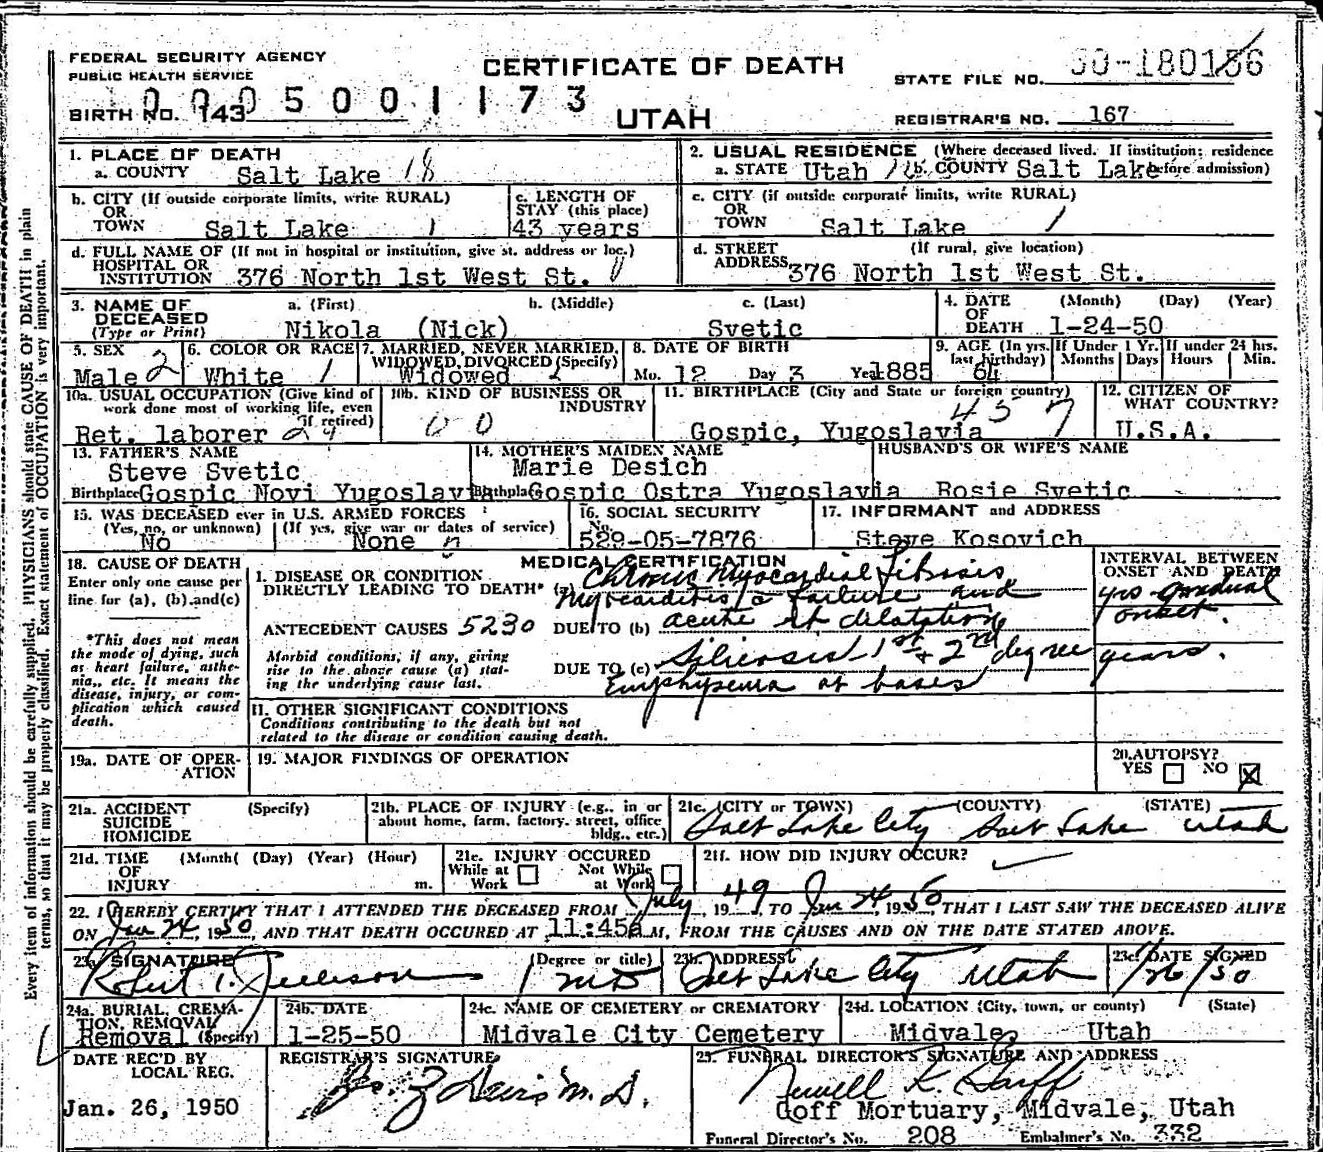 FEDERAL SECURITY AGENCY
PUBLIC HEALTH SERVICE
CERTIFICATE OF DEATH
STATE FILE NO.
0005001173
BIRTH NO. 143
UTAH
REGISTRAR'S NO. 167
1. PLACE OF DEATH
a. COUNTY Salt Lake 18
2. USUAL RESIDENCE (Where deceased lived. If institution: residence before admission)
a. STATE Utah b. COUNTY Salt Lake
b. CITY (If outside corporate limits, write RURAL)
OR
TOWN Salt Lake 1
c. LENGTH OF
STAY (this place)
43 years
c. CITY (if outside corporate limits, write RURAL)
OR
TOWN Salt Lake 1
d. FULL NAME OF (If not in hospital or institution, give st. address or loc.)
HOSPITAL OR
INSTITUTION 376 North 1st West St. 0
d. STREET (If rural, give location)
ADDRESS 376 North 1st West St.
3. NAME OF
DECEASED
(Type or Print)
a. (First) b. (Middle) c. (Last)
Nikola (Nick) Svetic
4. DATE (Month) (Day) (Year)
OF
DEATH 1-24-50
5. SEX
Male 2
6. COLOR OR RACE
White 1
7. MARRIED, NEVER MARRIED,
WIDOWED, DIVORCED (Specify)
Widowed
8. DATE OF BIRTH
Mo. 12 Day 3 Year 1885
9. AGE (In yrs. last birthday) 64
If Under 1 Yr. Months Days
If under 24 hrs. Hours Min.
10a. USUAL OCCUPATION (Give kind of
work done most of working life, even
if retired)
Ret. laborer
10b. KIND OF BUSINESS OR
INDUSTRY
00
11. BIRTHPLACE (City and State or foreign country)
Gospic, Yugoslavia
12. CITIZEN OF
WHAT COUNTRY?
U.S.A.
13. FATHER'S NAME
Steve Svetic
Birthplace Gospic Novi Yugoslavia
14. MOTHER'S MAIDEN NAME
Marie Desich
Birthplace Gospic Ostra Yugoslavia
HUSBAND'S OR WIFE'S NAME
Rosie Svetic
15. WAS DECEASED ever in U.S. ARMED FORCES
(Yes, no, or unknown) (If yes, give war or dates of service)
No None n
16. SOCIAL SECURITY
No.
529-05-7876
17. INFORMANT and ADDRESS
Steve Kosovich
18. CAUSE OF DEATH
Enter only one cause per
line for (a), (b) and (c)
*This does not mean
the mode of dying, such
as heart failure, asthe-
nia, etc. It means the
disease, injury, or com-
plication which caused
death.
MEDICAL CERTIFICATION
I. DISEASE OR CONDITION
DIRECTLY LEADING TO DEATH* (a) Chronic Myocardial Fibrosis
Myocarditis failure and
ANTECEDENT CAUSES 5230 DUE TO (b) acute rt dilatation
Morbid conditions, if any, giving
rise to the above cause (a) stat-
ing the underlying cause last.
DUE TO (c) Silicosis 1st + 2nd degree
Emphysema at bases
INTERVAL BETWEEN
ONSET AND DEATH
yrs gradual
onset.
years.
II. OTHER SIGNIFICANT CONDITIONS
Conditions contributing to the death but not
related to the disease or condition causing death.
19a. DATE OF OPER-
ATION
19. MAJOR FINDINGS OF OPERATION
20. AUTOPSY?
YES NO X
21a. ACCIDENT (Specify)
SUICIDE
HOMICIDE
21b. PLACE OF INJURY (e.g., in or
about home, farm, factory, street, office
bldg., etc.)
21c. (CITY or TOWN) (COUNTY) (STATE)
Salt Lake City Salt Lake Utah
21d. TIME (Month) (Day) (Year) (Hour)
OF
INJURY m.
21e. INJURY OCCURED
While at Work Not While at Work
21f. HOW DID INJURY OCCUR?
22. I HEREBY CERTIFY THAT I ATTENDED THE DECEASED FROM July, 1949, TO Jan 24, 1950, THAT I LAST SAW THE DECEASED ALIVE
ON Jan 24, 1950, AND THAT DEATH OCCURED AT 11:45a M., FROM THE CAUSES AND ON THE DATE STATED ABOVE.
23a. SIGNATURE (Degree or title)
Robert T. MD
23b. ADDRESS
Salt Lake City Utah
23c. DATE SIGNED
1/26/50
24a. BURIAL, CREMA-
TION, REMOVAL (Specify)
Removal
24b. DATE
1-25-50
24c. NAME OF CEMETERY or CREMATORY
Midvale City Cemetery
24d. LOCATION (City, town, or county) (State)
Midvale, Utah
DATE REC'D BY
LOCAL REG.
Jan. 26, 1950
REGISTRAR'S SIGNATURE
Davis M.D.
25. FUNERAL DIRECTOR'S SIGNATURE AND ADDRESS
Newell K.
Goff Mortuary, Midvale, Utah
Funeral Director's No. 208 Embalmer's No. 332
Every item of information should be carefully supplied. PHYSICIANS should state CAUSE OF DEATH in plain
terms, so that it may be properly classified. Exact statement of OCCUPATION is very important.